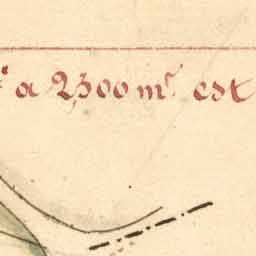 a 2,300 mᵗ est